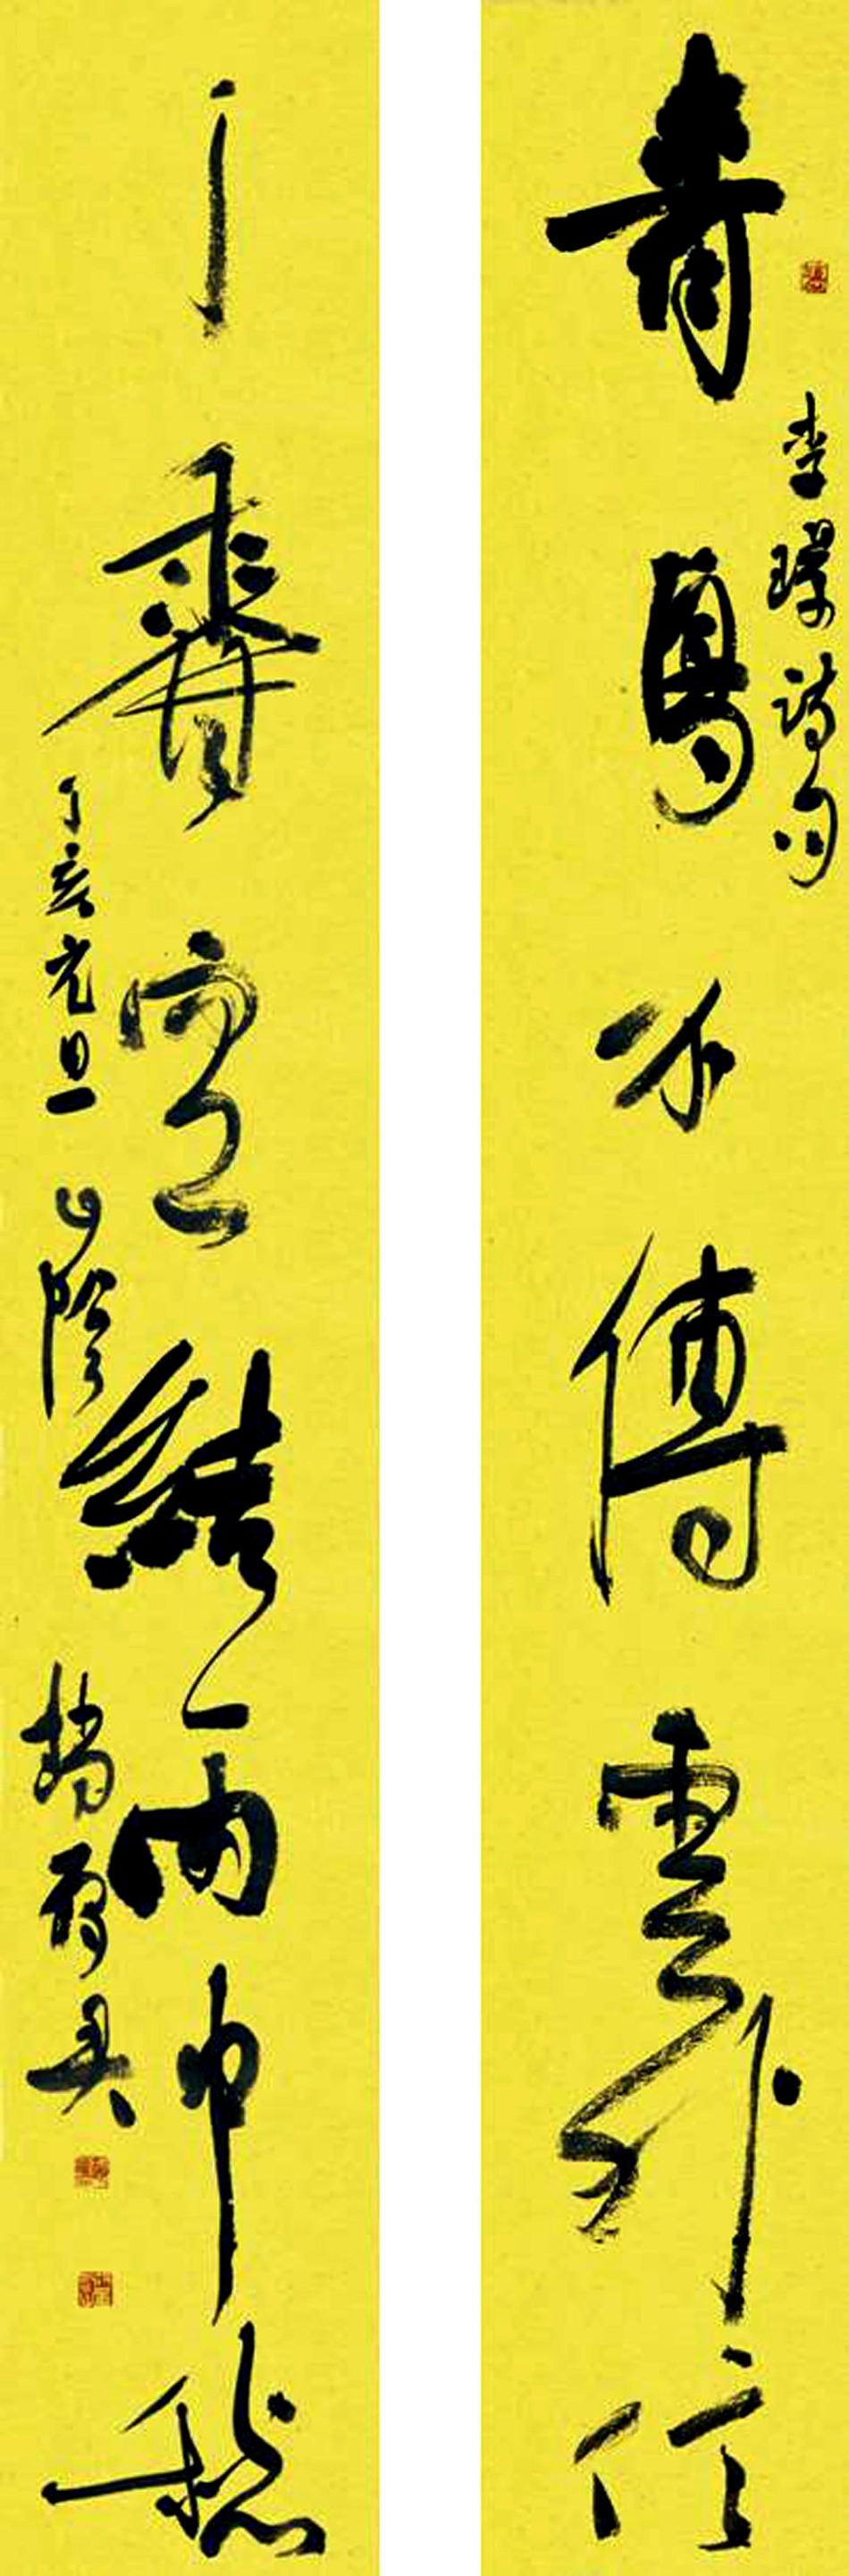 青鳥不傳雲外信
李璟詩句
丁香空結雨中愁
丁亥元旦 山陰
楊𩃎具